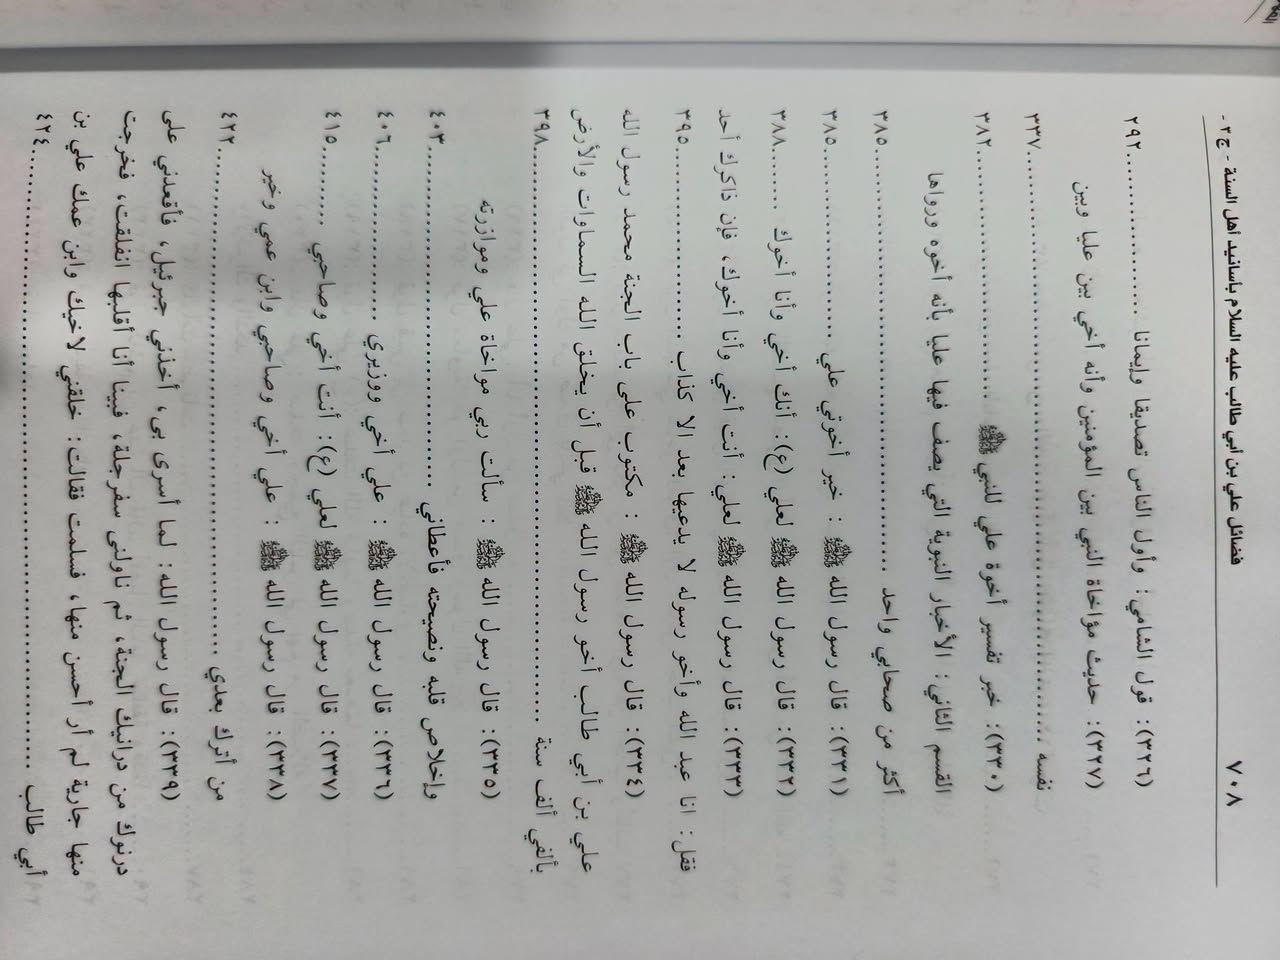 ٧٠٨ فضائل علي بن ابي طالب عليه السلام بأسانيد أهل السنة - ج٣ -
(٣٢٦): قول الشامي: وأول الناس تصديقا وإيمانا ........................ ٢٩٢
(٣٢٧): حديث مؤاخاة النبي بين المؤمنين وأنه أخي بين عليا وبين
نفسه ........................ ٣٣٧
(٣٣٠): خبر تفسير أخوة علي للنبي ﷺ ........................ ٣٨٢
القسم الثاني: الأخبار النبوية التي يصف فيها عليا بأنه أخوه ورواها
أكثر من صحابي واحد ........................ ٣٨٥
(٣٣١): قال رسول الله ﷺ : خير أخوتي علي ........................ ٣٨٥
(٣٣٢): قال رسول الله ﷺ لعلي (ع): أنك أخي وأنا أخوك ........ ٣٨٨
(٣٣٣): قال رسول الله ﷺ لعلي: أنت أخي وأنا أخوك، فإن ذاكرك أحد
فقل: انا عبد الله وأخو رسوله لا يدعيها بعد الا كذاب ................ ٣٩٥
(٣٣٤): قال رسول الله ﷺ : مكتوب على باب الجنة محمد رسول الله
علي بن أبي طالب أخو رسول الله ﷺ قبل أن يخلق الله السماوات والأرض
بألفي ألف سنة ........................ ٣٩٨
(٣٣٥): قال رسول الله ﷺ : سألت ربي مواخاة علي وموازرته
وإخلاص قلبه ونصيحته فأعطاني ........................ ٤٠٣
(٣٣٦): قال رسول الله ﷺ : علي أخي ووزيري ........................ ٤٠٦
(٣٣٧): قال رسول الله ﷺ لعلي (ع): أنت أخي وصاحبي ............ ٤١٥
(٣٣٨): قال رسول الله ﷺ : علي أخي وصاحبي وابن عمي وخير
من أترك بعدي ........................ ٤٢٢
(٣٣٩): قال رسول الله: لما أسرى بى، أخذني جبرئيل، فأقعدني على
درنوك من درانيك الجنة، ثم ناولنى سفرجلة، فبينا أنا أقلبها انفلقت، فخرجت
منها جارية لم أر أحسن منها، فسلمت فقالت: خلقني لاخيك وابن عمك علي بن
أبي طالب ........................ ٤٢٤